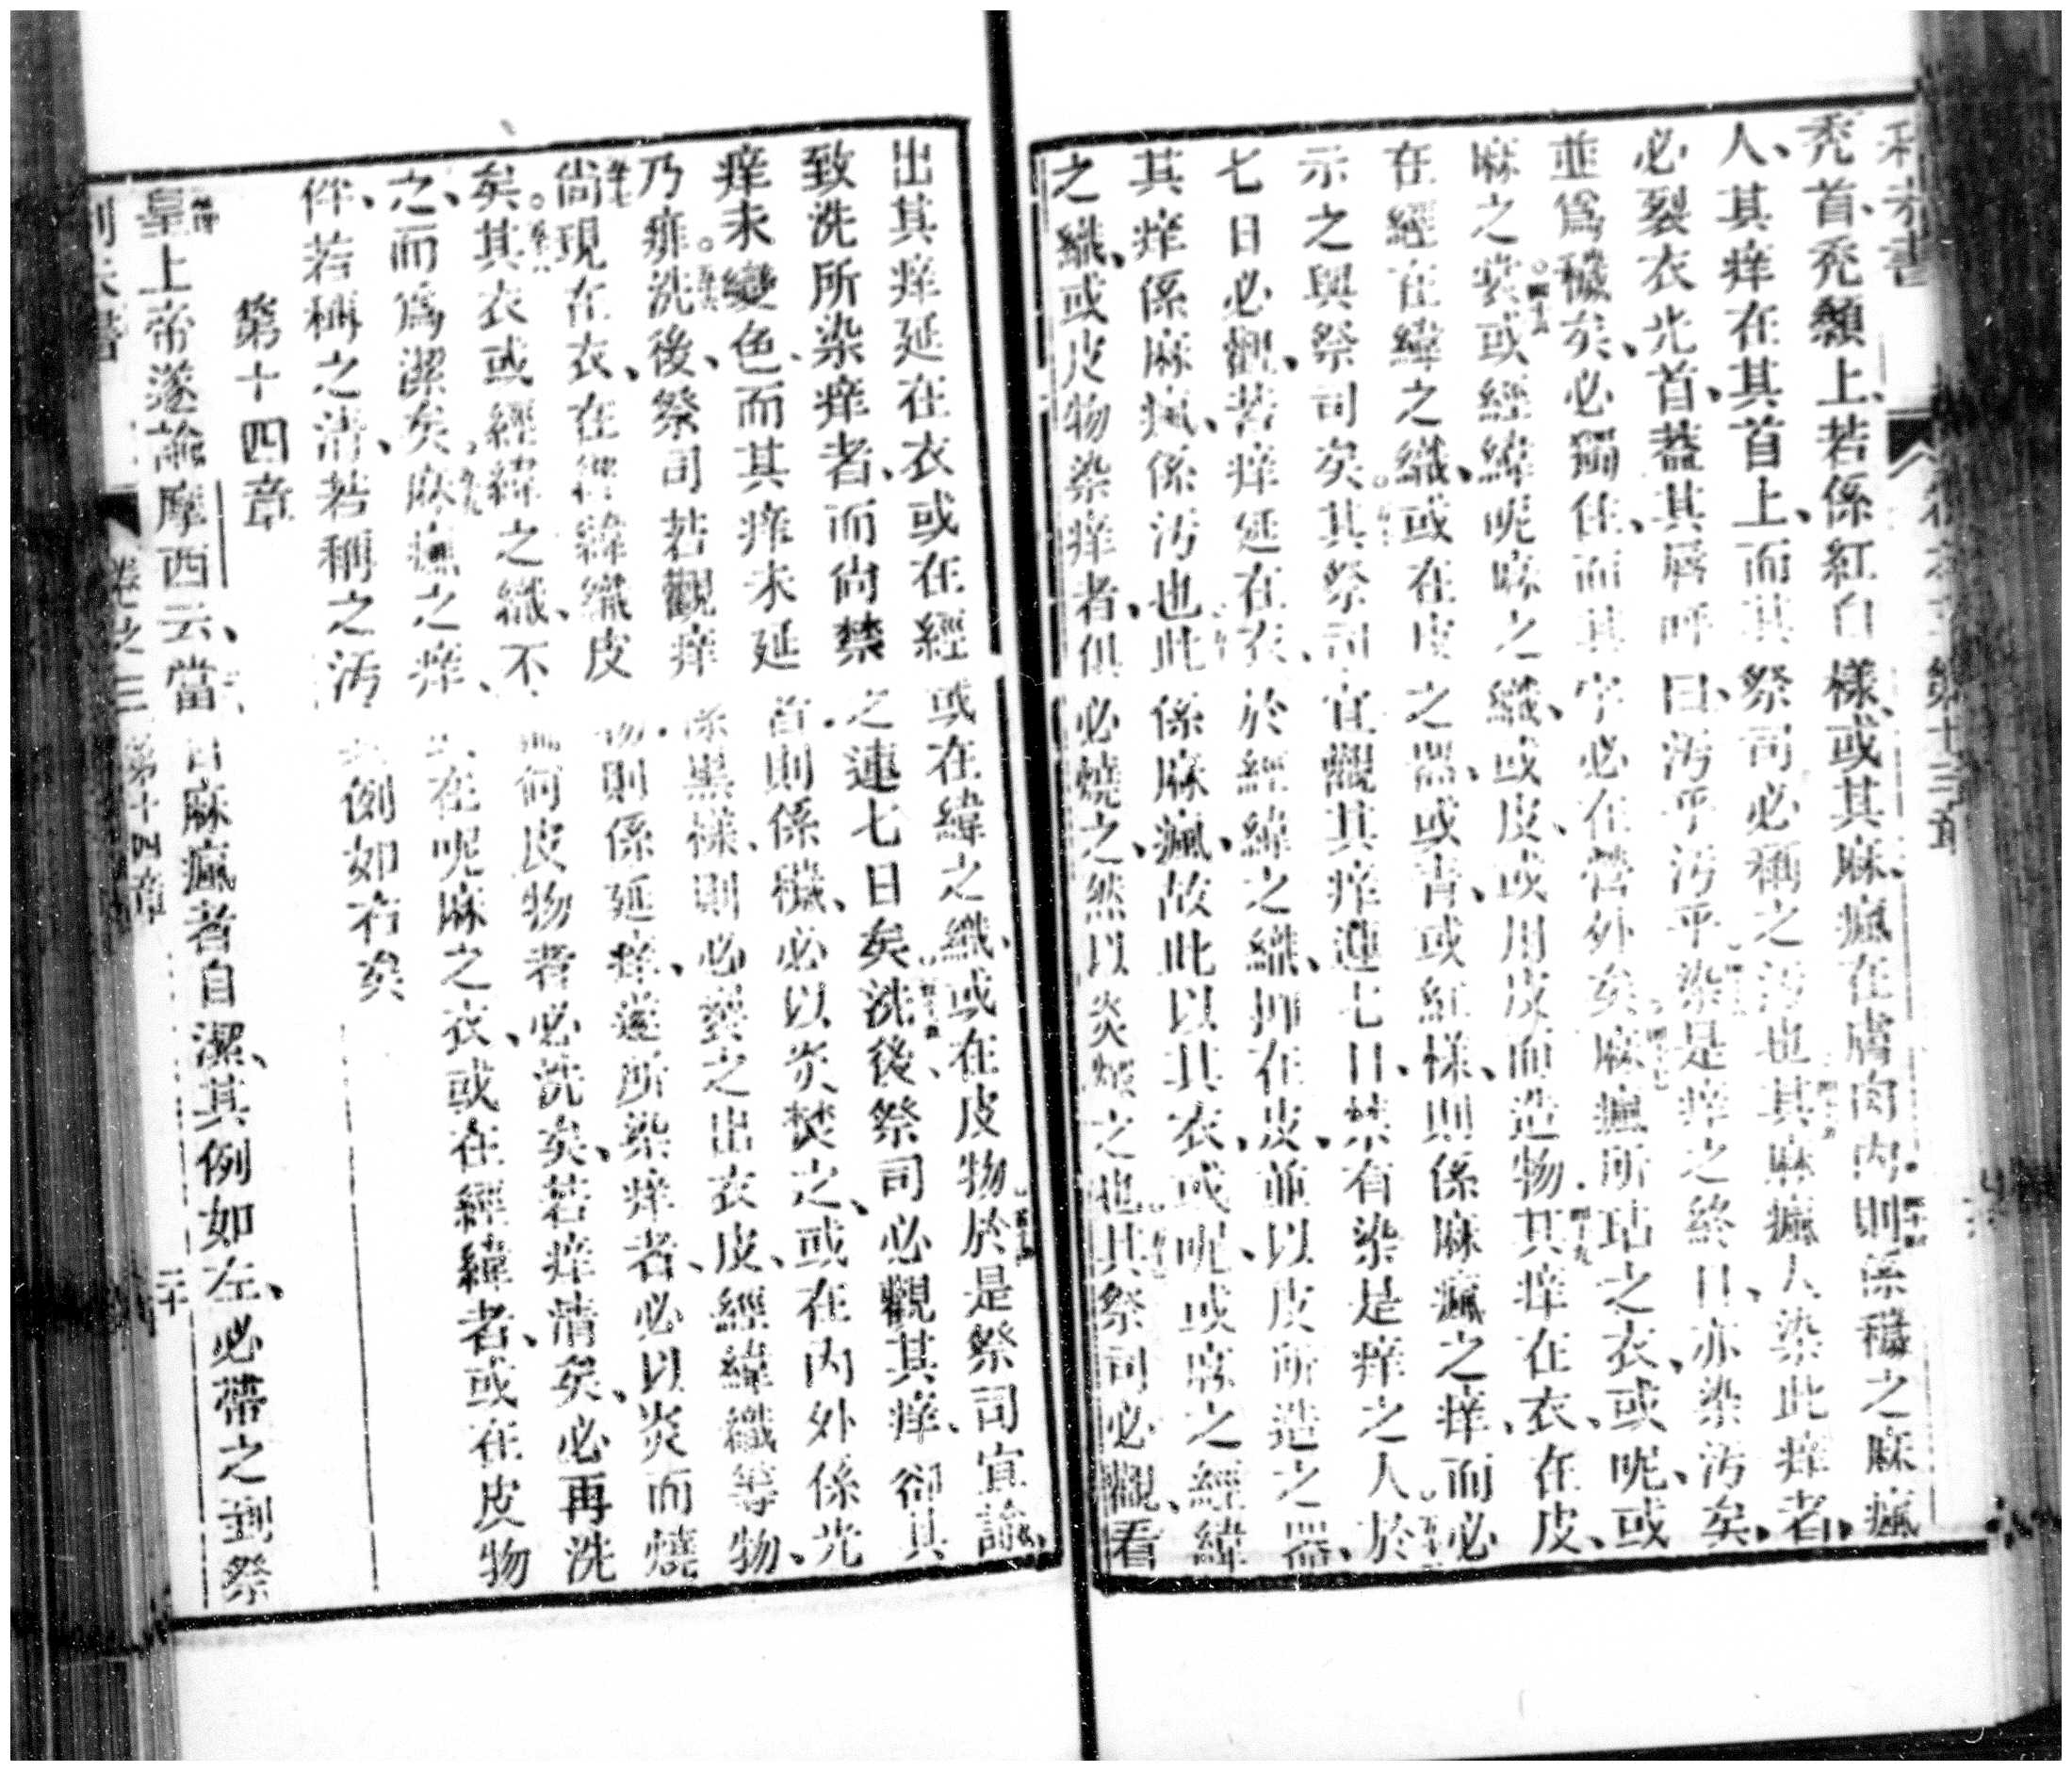 禿首、禿顙上、若係紅白樣、或其麻瘋在膚肉內、則係穢之麻瘋
人、其痒在其首上、而其祭司必稱之污也其麻瘋人染此痒者、
必裂衣光首、蓋其唇呼曰、污乎污乎染是痒之終日、亦染污矣、
並爲穢矣、必獨住、而其宇必在營外矣麻瘋所玷之衣、或呢、或
麻之裳或經緯呢麻之織、或皮、或用皮而造物其痒在衣、在皮、
在經在緯之織、或在皮之器、或青、或紅樣、則係麻瘋之痒、而必
示之與祭司矣其祭司宜觀其痒連七日、禁有染是痒之人於
七日必觀、若痒延在衣於經緯之織、抑在皮、並以皮所造之器、
其痒係麻瘋、係污也此係麻瘋、故此以其衣、或呢、或麻之經緯
之織、或皮物染痒者、俱必燒之、然以炎燬之也其祭司必觀、看
出其痒延在衣或在經或在緯之織、或在皮物於是祭司宜諭、
致洗所染痒者、而尚禁之連七日矣洗後、祭司必觀其痒、卻其
痒未變色而其痒未延者則係穢、必以炎焚之、或在內外係光
乃痱洗後、祭司若觀痒係黑樣、則必裂之出衣皮、經緯織等物、
尚現在衣、在經緯織皮物則係延痒、遂所染痒者、必以炎而燒
矣其衣或經緯之織、不論何皮物者必洗矣、若痒清矣、必再洗
之、而爲潔矣麻瘋之痒、或在呢麻之衣、或在經緯者、或在皮物
件、若稱之清、若稱之污其例如右矣
第十四章
皇上帝遂諭摩西云、當日麻瘋者自潔、其例如左、必帶之到祭
卷之三 第十四章 二十